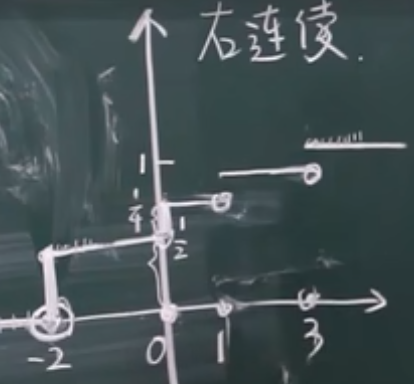 右连续.
1
1/4
1/2
-2 0 1 3